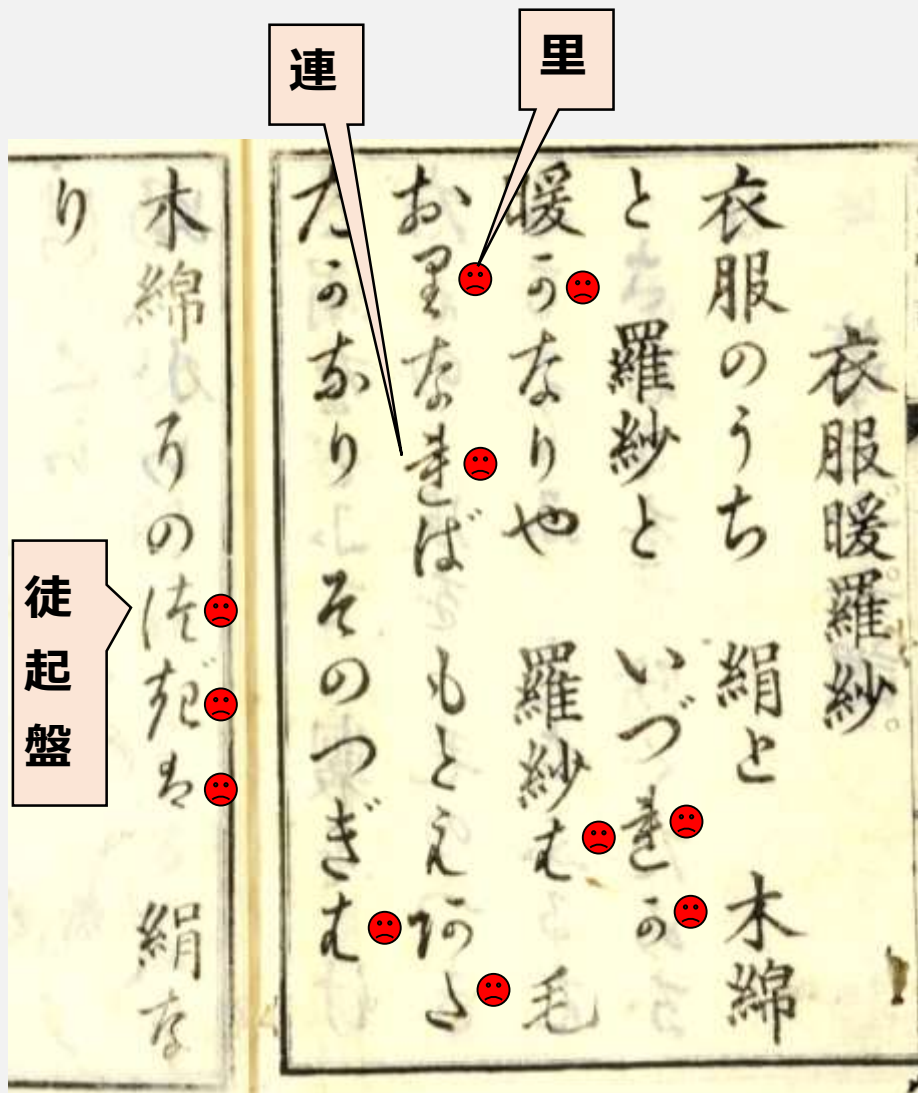 連
里
徒起盤
衣服暖羅紗
衣服のうち　絹と　木綿
と　羅紗と　いづれか
暖かなりや　羅紗は　毛
おりなれば　もと　あた
たかなり　そのつぎは
木綿　そのつぎは　絹な
り